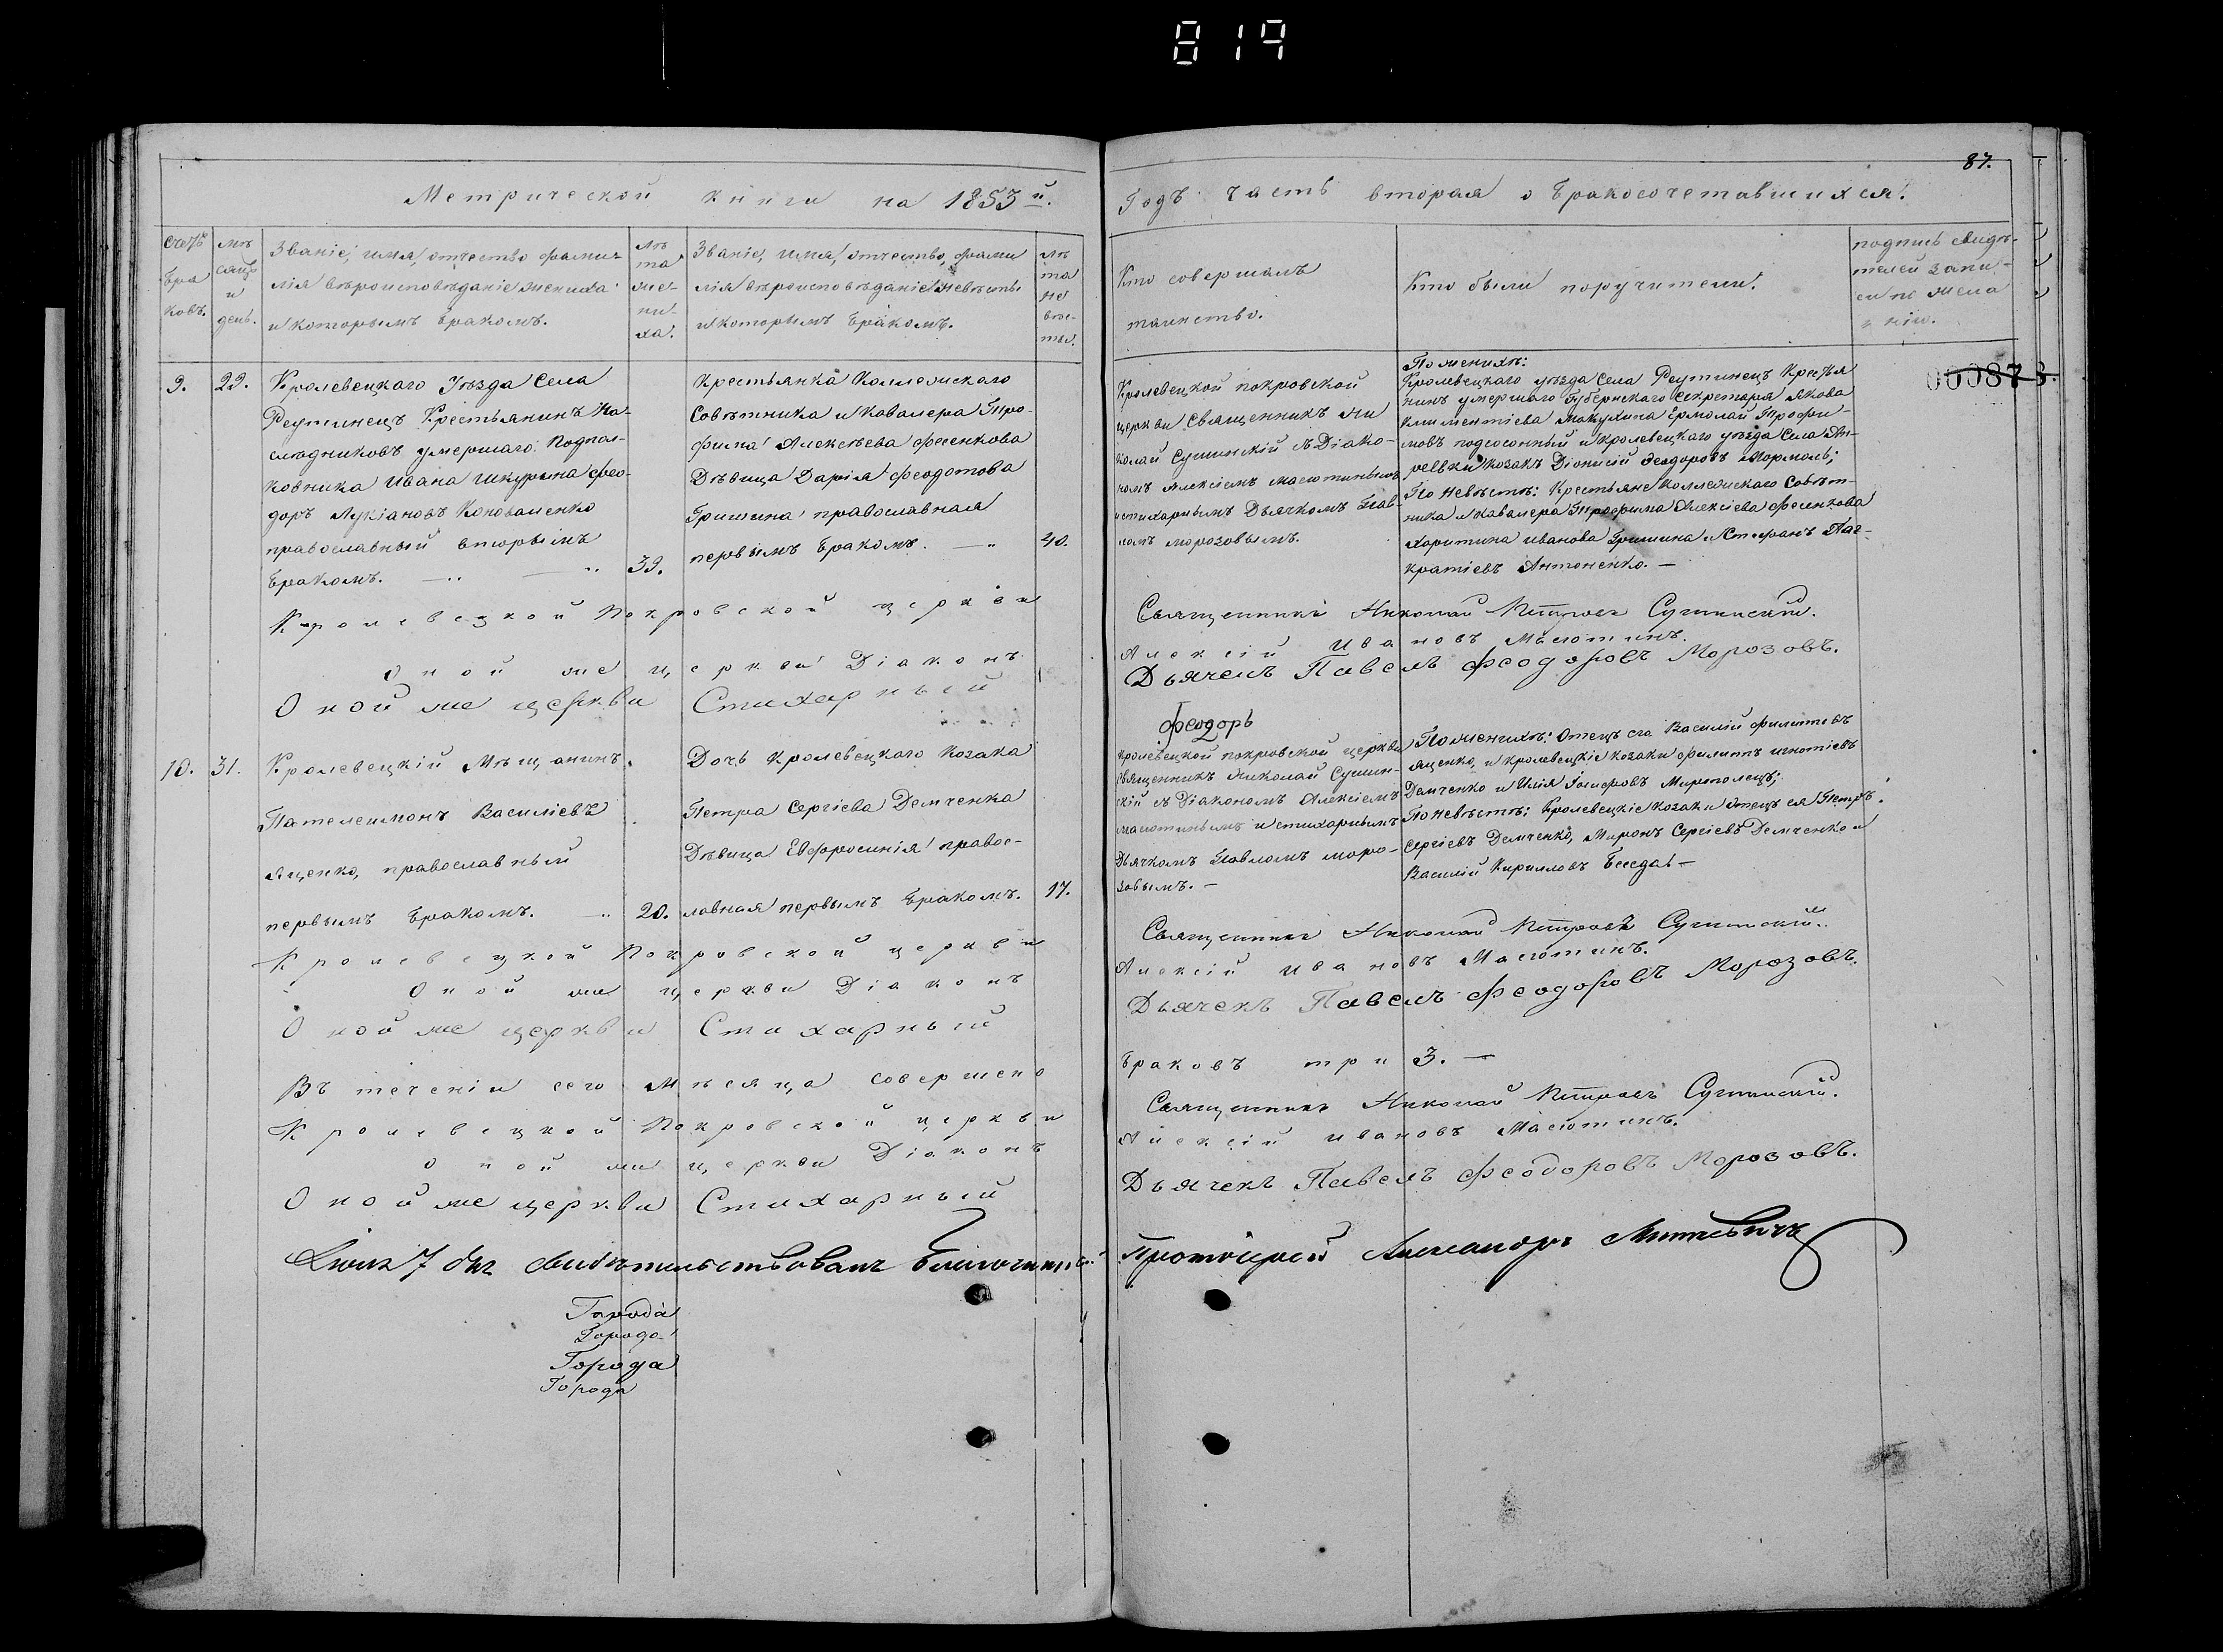 819
87.
Метрической книги на 1853й.
Годъ часть вторая о бракосочетавшихся.
счетъ браковъ.
мѣсяцъ и день.
Званіе, имя, отчество фами-
лія вѣроисповѣданіе жениха
и которымъ бракомъ.
лѣта жениха.
Званіе, имя, отчество, фами
лія вѣроисповѣданіе невѣсты
и которымъ бракомъ.
лѣта невѣсты.
Кто совершалъ
таинство.
Кто были поручители.
подпись свидѣ-
телей запи-
си по жела
нію.
9. 29.
Кролевецкаго Уѣзда Села
Реутинецъ Крестьянинъ На-
слѣдниковъ умершаго Подпол-
ковника Ивана Шкурина Фео-
доръ Лукіановъ Коноваленко
православный вторымъ
бракомъ. 39.
крестьянка Коллежскаго
Совѣтника и Кавалера Тро-
фима Алексѣева Фесенкова
Дѣвица Дарія Феодотова
Гришина православная
первымъ бракомъ. 40.
Кролевецкой покровской
церкви Священникъ Ни
колай Сушинскій съ Діако-
номъ Алексіемъ Масютинымъ
и стихарнымъ Дьячкомъ Пав-
ломъ Морозовымъ.
По женихѣ:
Кролевецкаго уѣзда Села Реутинецъ Крестья
нинъ умершаго Губернскаго Секретаря Якова
Климентіева Ермолай Трофи-
мовъ и Кролевецкаго уѣзда Села Ан-
козакъ Діонисій Феодоровъ
По невѣстѣ: Крестьяне Коллежскаго Совѣт-
ника и Кавалера Трофима Алексіева Фесенкова
Харитина Иванова Гришина и Стефанъ Пан-
кратіевъ Антоненко.
Кролевецкой Покровской церкви Священникъ Николай Петровъ Сушинскій.
Оной же церкви Діаконъ Алексій Ивановъ Масютинъ.
Оной же церкви Стихарный Дьячекъ Павелъ Феодоровъ Морозовъ.
Феодоръ
10. 31.
Кролевецкій Мѣщанинъ
Пателеимонъ Василіевъ
Яценко, православный
первымъ бракомъ. 20.
Дочь Кролевецкаго Козака
Петра Сергіева Демченка
Дѣвица Евфросинія правос-
лавная первымъ бракомъ. 17.
Кролевецкой покровской церкви
Священникъ Николай Сушин-
скій съ Діакономъ Алексіемъ
Масютинымъ и стихарнымъ
Дьячкомъ Павломъ Моро-
зовымъ.
По женихѣ: Отецъ его Василій Филиповъ
Яценко, и кролевецкіе козаки Филиппъ Игнатіевъ
Демченко и Илія Іосифовъ
По невѣстѣ: Кролевецкіе козаки Отецъ ея Петръ
Сергіевъ Демченко, Миронъ Сергіевъ Демченко и
Василій Кирилловъ Беседа.
Кролевецкой Покровской церкви Священникъ Николай Петровъ Сушинскій.
Оной же церкви Діаконъ Алексій Ивановъ Масютинъ.
Оной же церкви Стихарный Дьячекъ Павелъ Феодоровъ Морозовъ.
Въ теченіи сего Мѣсяца Совершено браковъ три 3.
Кролевецкой Покровской церкви Священникъ Николай Петровъ Сушинскій.
Оной же церкви Діаконъ Алексій Ивановъ Масютинъ.
Оной же церкви Стихарный Дьячекъ Павелъ Феодоровъ Морозовъ.
7 дня свидѣтельствовалъ Благочинный Протоіерей Александръ
Города
Города
Города
Города